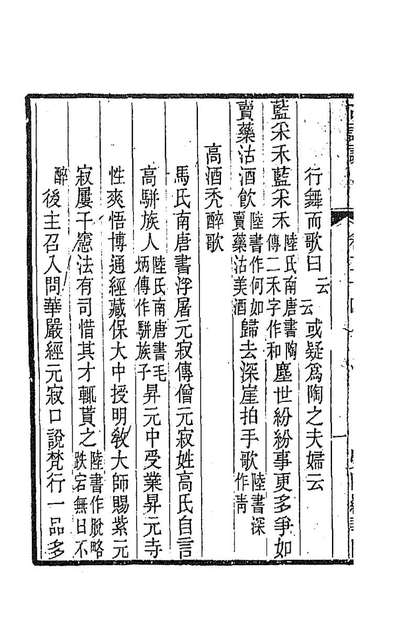 行舞而歌曰云云或疑爲陶之夫婦云
藍采禾藍采禾陸氏南唐書陶傳二禾字作和塵世紛紛事更多爭如
賣藥沽酒飲陸書作何如賣藥沽美酒歸去深崖拍手歌陸書深作靑
高酒禿醉歌
馬氏南唐書浮屠元寂傳僧元寂姓高氏自言
高駢族人陸氏南唐書毛炳傳作駢族子昇元中受業昇元寺
性爽悟博通經藏保大中授明敎大師賜紫元
寂屢干憲法有司惜其才輒貰之陸書作脫略跌宕無日不
醉後主召入問華嚴經元寂口說梵行一品多